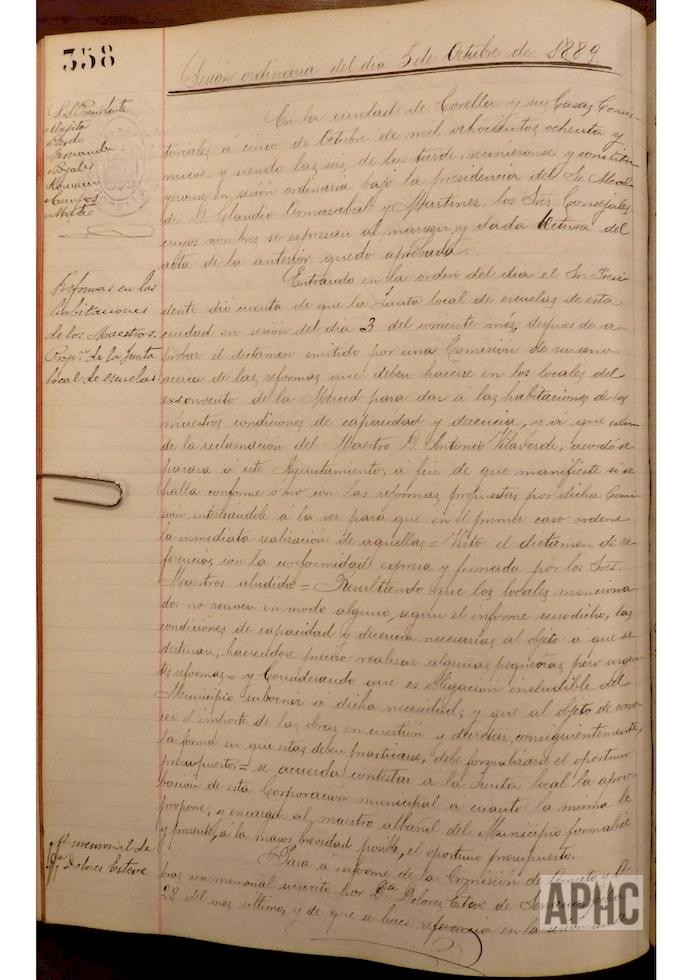 358
Sesion ordinaria del dia 5 de Octubre de 1889.
S.S. Presidente
En la ciudad de Corella y sus Casas Consis-
toriales a cinco de Octubre de mil ochocientos ochenta y
nueve y siendo las seis de la tarde, reunieronse y constitu
yeronse en sesión ordinaria bajo la presidencia del Sr. Alcal
de D. Claudio Ormasabal y Martinez los Sres Concejales
cuyos nombres se expresan al margen, y dada lectura del
acta de la anterior quedo aprobada.
Reformas en las
habitaciones
de los Maestros.
Prop.ⁿ de la Junta
local de escuelas
Entrando en la orden del dia el Sr. Presi
dente dió cuenta de que la Junta local de escuelas de esta
ciudad en sesión del dia 3 del corriente mes, despues de a-
probar el dictamen emitido por una Comisión de su seno
acerca de las reformas que deben hacerse en los locales del
exconvento de la Merced para dar á las habitaciones de los
maestros condiciones de capacidad y decencia, y a que
de la reclamación del Maestro D. Antonio Vilaverde, acordó se
pasara a este Ayuntamiento, á fin de que manifieste si se
halla conforme o no con las reformas propuestas por dicha Comi
sión, interesandole á la vez para que en el primer caso ordene
la inmediata realización de aquellas = Visto el dictamen de re
ferencia, con la conformidad expresa y firmada por los Sres.
Maestros aludidos = Resultando que los locales menciona
dos no reunen en modo alguno, según el informe susodicho, las
condiciones de capacidad y decencia necesarias al objeto a que se
destinan, haciendose preciso realizar algunas pequeñas pero urgen
tes reformas = y Considerando que es obligación ineludible del
Municipio subvenir á dicha necesidad; y que al objeto de cono-
cer el importe de las obras en cuestión y decidir, consiguientemente,
la forma en que estas deben practicarse, debe formalizarse el oportuno
presupuesto = se acuerda contestar á la Junta local la apro-
bación de esta Corporación municipal a cuanto la misma le
propone, y encargar al maestro albañil del Municipio formalice
y presente, á la mayor brevedad posible, el oportuno presupuesto.
memorial de
D.ª Dolores Esteve
Pasa á informe de la Comisión de
bras un memorial suscrito por D.ª Dolores Esteve de
28 del mes ultimo, y de que se hace referencia en la
APHC